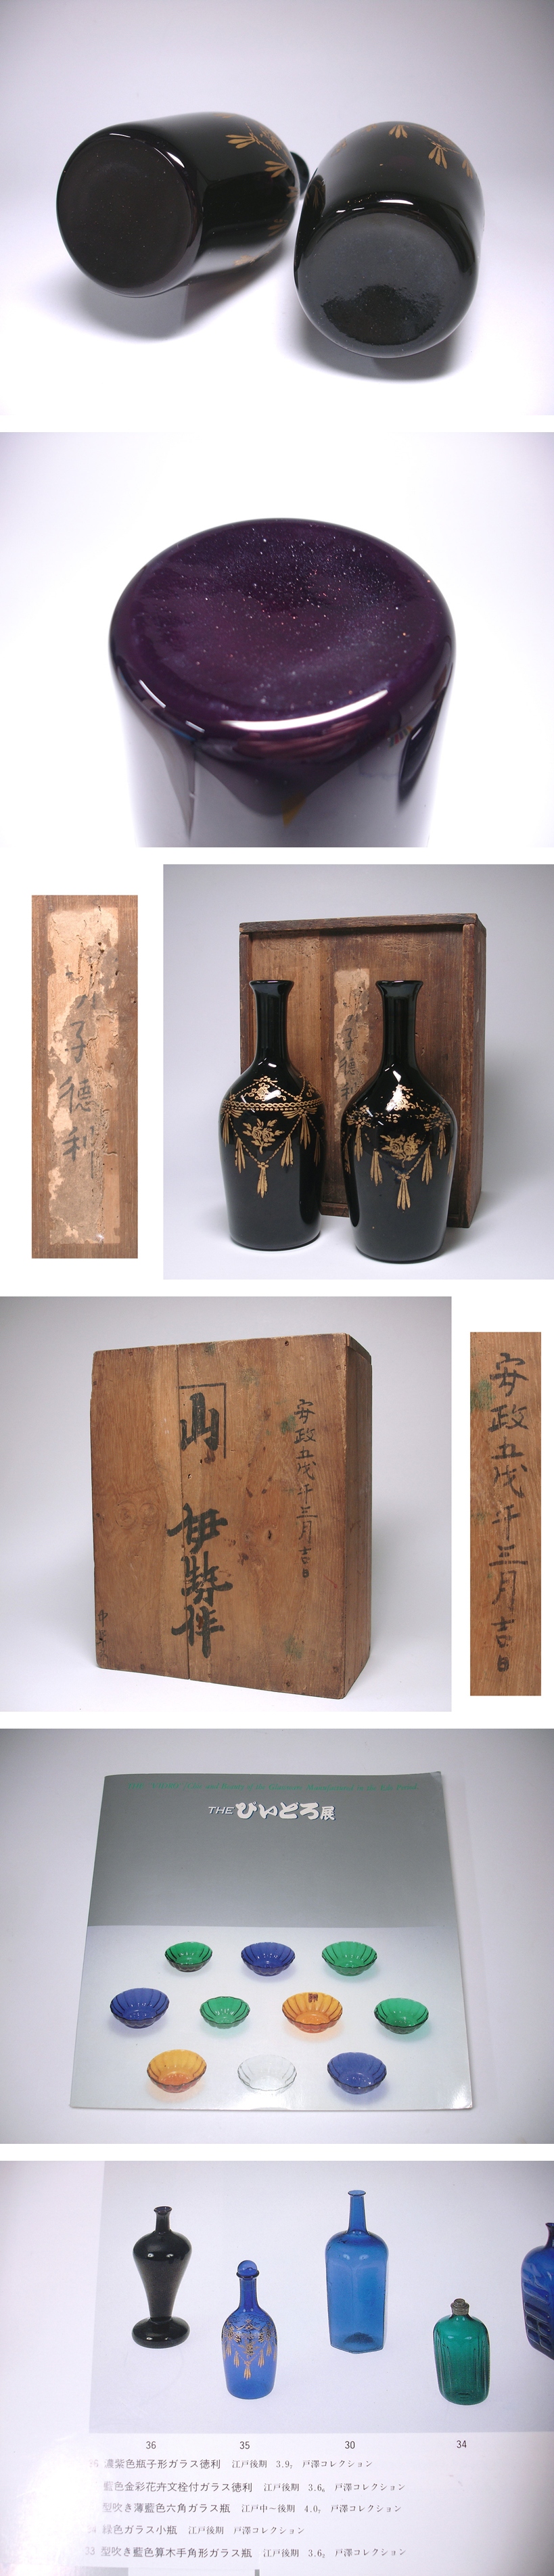 子徳利
子徳利
安政五戊午三月吉日
山
伊勢作
安政五戊午三月吉日
THEびいどろ展
36 35 30 34
濃紫色瓶子形ガラス徳利 江戸後期 3.9₇ 戸澤コレクション
藍色金彩花卉文栓付ガラス徳利 江戸後期 3.6₆ 戸澤コレクション
型吹き薄藍色六角ガラス瓶 江戸中〜後期 4.0₇ 戸澤コレクション
緑色ガラス小瓶 江戸後期 戸澤コレクション
33 型吹き藍色算木手角形ガラス瓶 江戸後期 3.6₂ 戸澤コレクション